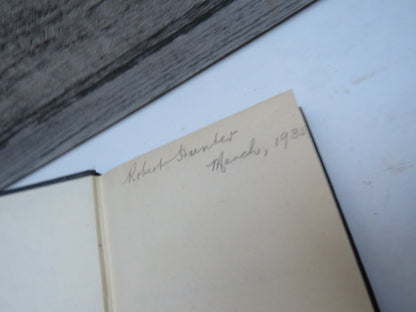 Robert Hunter
March, 1935